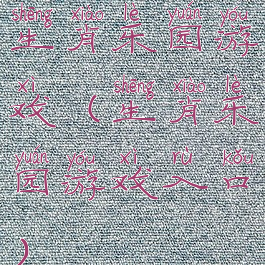 shēng xiāo lè yuán yóu
生肖乐园游
xì shēng xiāo lè
戏(生肖乐
yuán yóu xì rù kǒu
园游戏入口
)